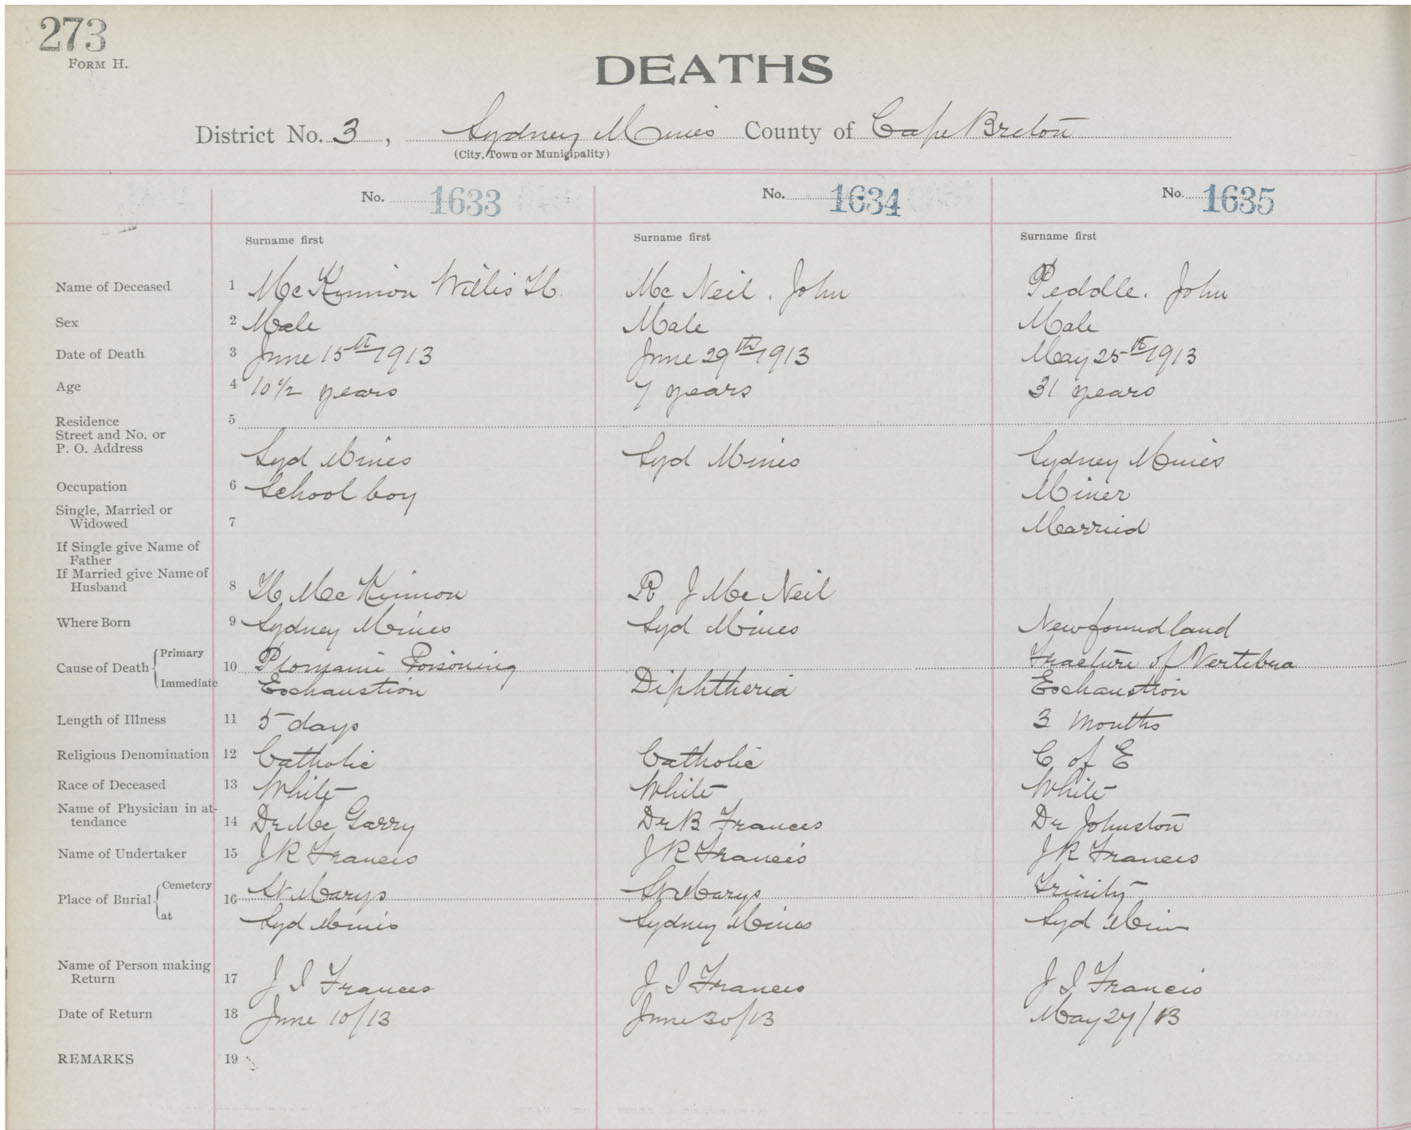 273
FORM H.
DEATHS
District No. 3, Sydney Mines County of Cape Breton
(City, Town or Municipality)
No. 1633 No. 1634 No. 1635
Surname first Surname first Surname first
Name of Deceased 1 McKinnon Willis H. Mc Neil. John Peddle. John
Sex 2 Male Male Male
Date of Death 3 June 15th 1913 June 29th 1913 May 25th 1913
Age 4 10 1/2 years 7 years 31 years
Residence 5
Street and No. or
P. O. Address
Syd Mines Syd Mines Sydney Mines
Occupation 6 School boy Miner
Single, Married or
Widowed 7 Married
If Single give Name of
Father
If Married give Name of
Husband 8 H McKinnon R J McNeil
Where Born 9 Sydney Mines Syd Mines Newfoundland
Cause of Death Primary 10 Ptomanie Poisoning Fracture of Vertebra
Immediate Exhaustion Diphtheria Exhaustion
Length of Illness 11 5 days 3 months
Religious Denomination 12 Catholic Catholic C of E
Race of Deceased 13 White White White
Name of Physician in at-
tendance 14 Dr McGarry Dr B Francis Dr Johnston
Name of Undertaker 15 J R Francis J R Francis J R Francis
Place of Burial Cemetery 16 St Marys St Marys Trinity
at Syd Mines Sydney Mines Syd Min
Name of Person making
Return 17 J I Francis J I Francis J I Francis
Date of Return 18 June 10/13 June 30/13 May 27/13
REMARKS 19